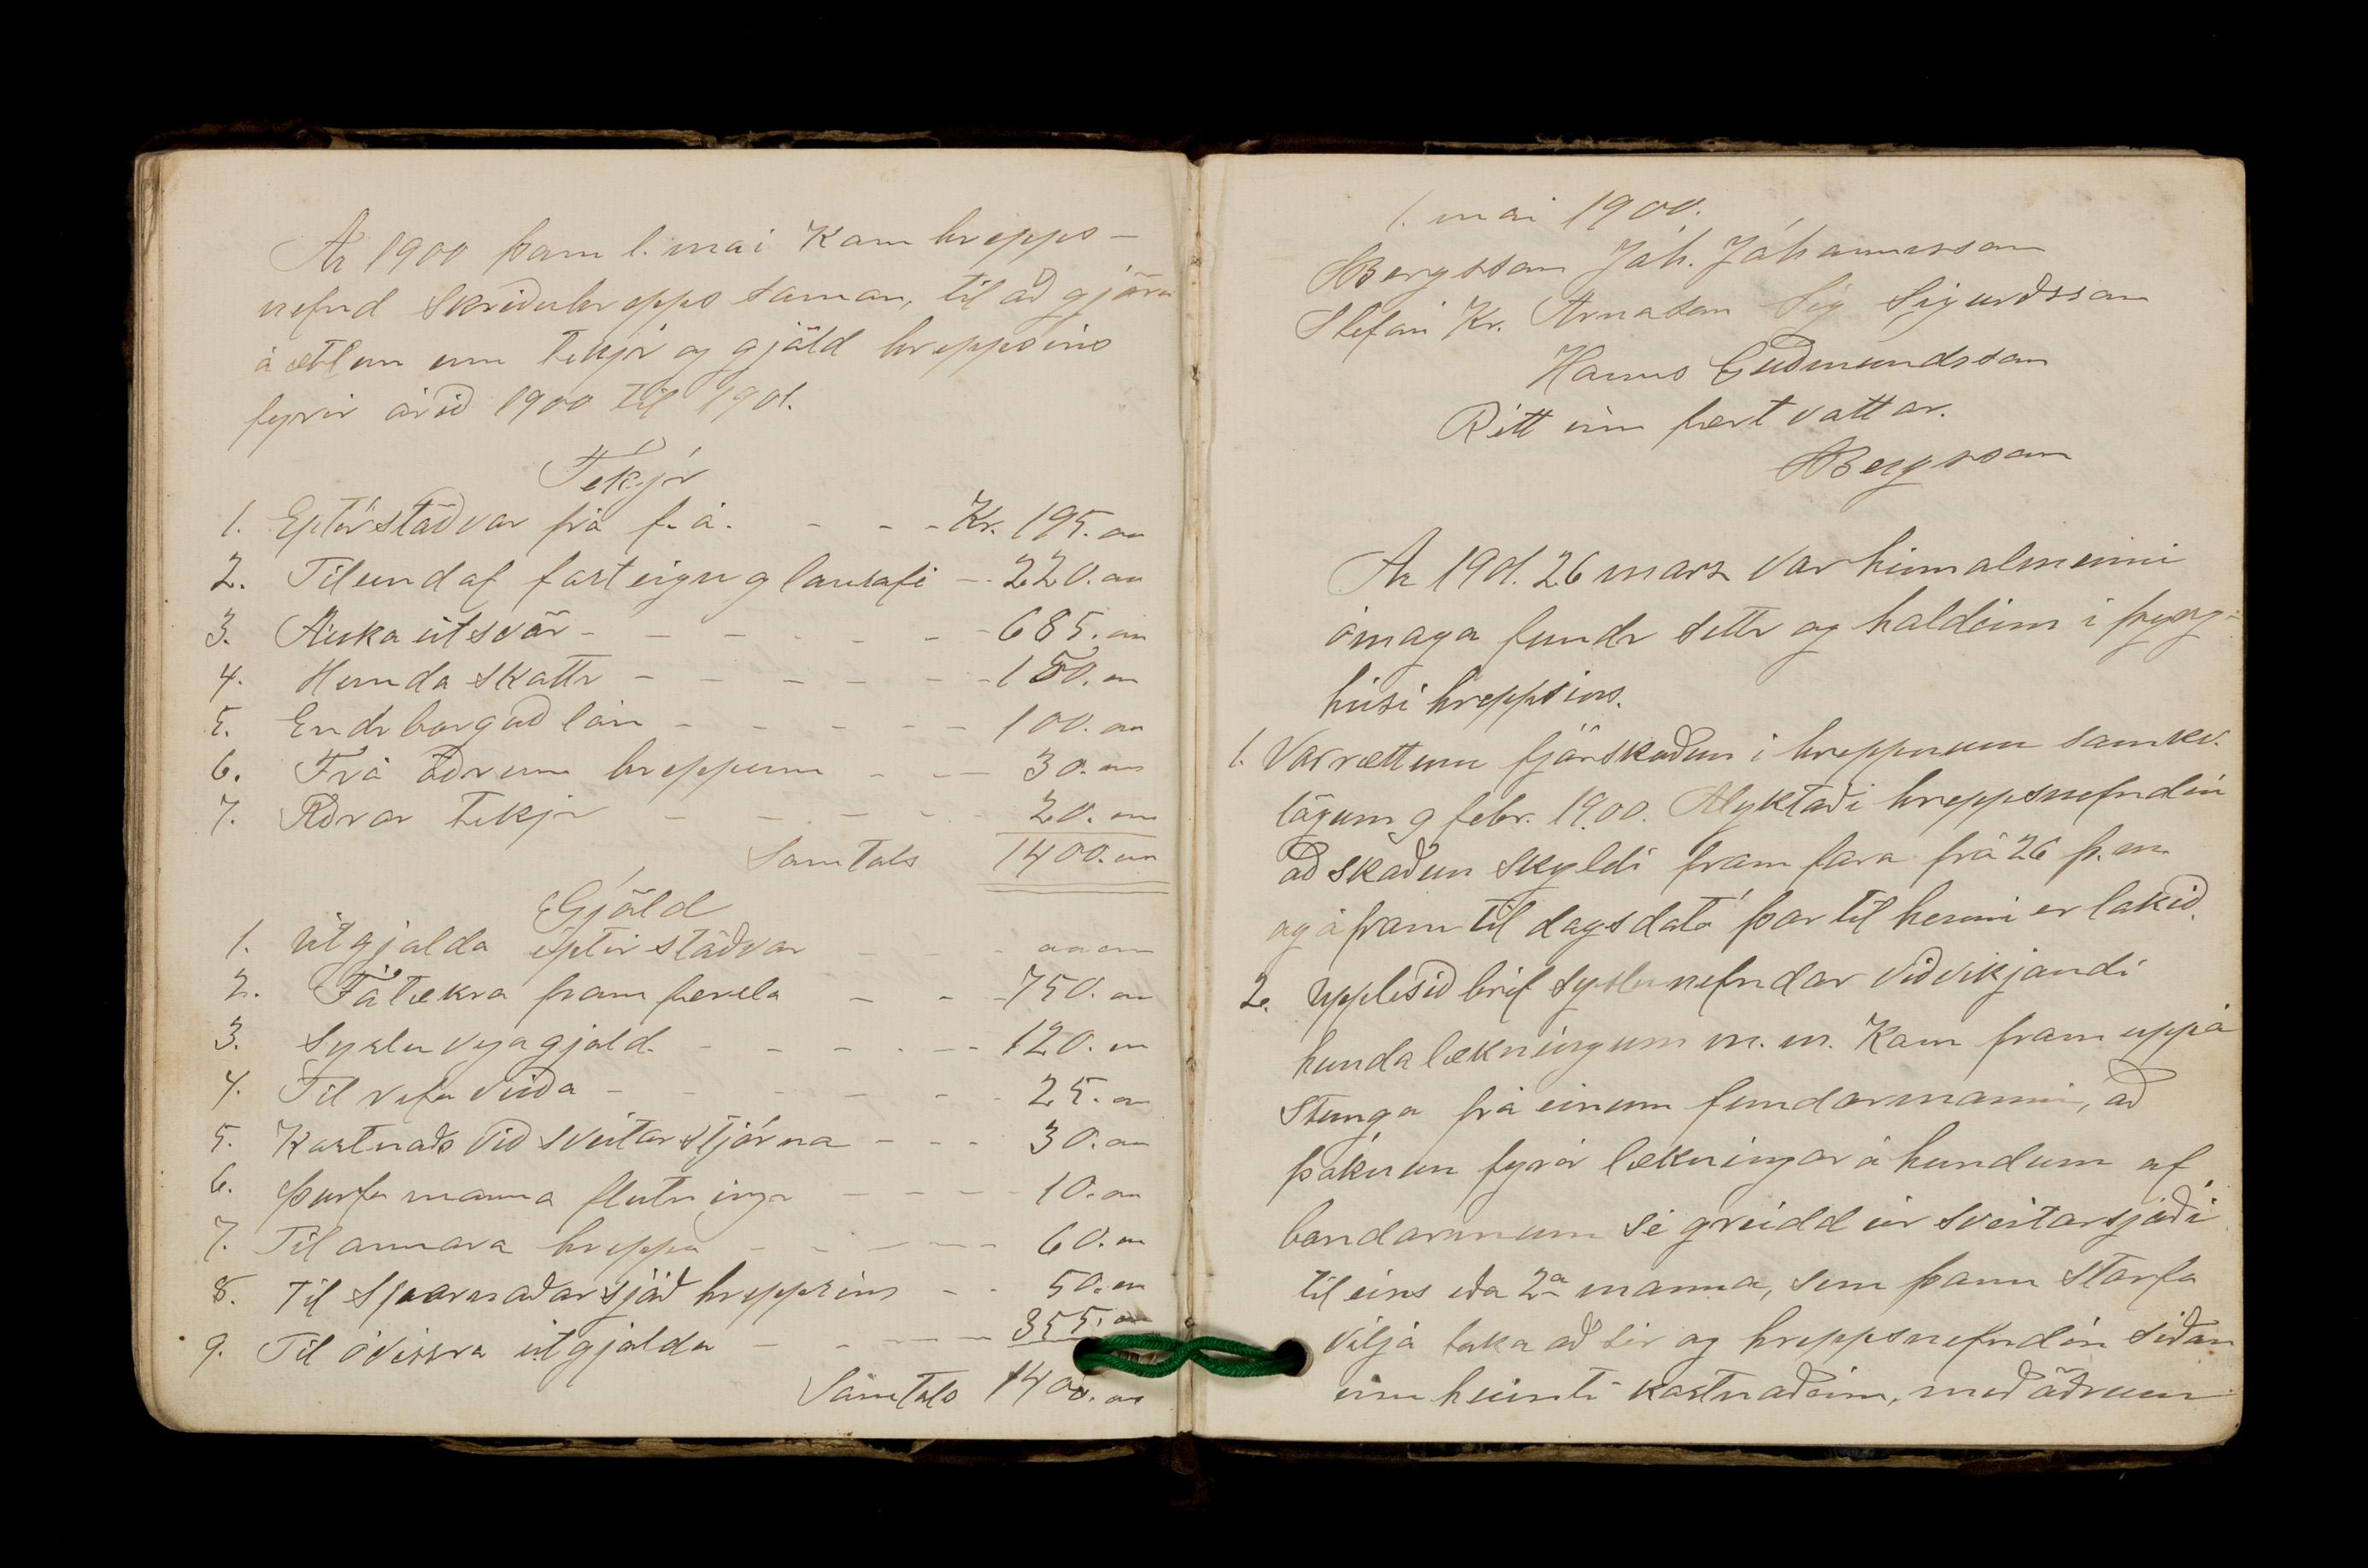 Ár 1900 þann 1. mai kom hrepps-
nefnd Skriðuhrepps saman, til að gjöra
áætlun um tekjr og gjöld hreppsins
fyrir árið 1900 til 1901.
Tekjr
1. Eptirstöðvar frá f. á. - - - Kr. 195. "
2. Tíiund af fasteign g lausafé - - 220. "
3. Auka útsvör - - - - - - - 685. "
4. Hunda skattr - - - - - - - 150. "
5. Endrborguð lán - - - - - - 100. "
6. Frá öðrum hreppum - - - 30. "
7. Aðrar tekjr - - - - - 20. "
Samtals 1400. "
Gjöld
1. Útgjalda eptirstöðvar - - - " "
2. Fátækra framfærsla - - - 750. "
3. Sýsluvegagjald - - - - - - 120. "
4. Til refa veiða - - - - - - 25. "
5. Kostnaðr við sveitarstjórna - - - 30. "
6. Þurfamanna flutningr - - - - - 10. "
7. Til annara hreppa - - - - - - 60. "
8. Til Sparnaðarsjóð hreppsins - - 50. "
9. Til óvissra útgjalda - - - - - 355. "
Samtals 1400. "
1. mai 1900.
HBergsson Jóh. Jóhannesson
Stefán Kr. Árnason Sig Sigurðsson
Hannes Guðmundsson
Rétt inn fært vattar.
HBergsson
Ár 1901. 26 mars var hinn almenni
ómaga fundr settr og haldinn í þing-
húsi hreppsins.
1. Var rætt um fjárskoðun í hreppnum samkv.
lögum 9 febr. 1900. Ályktaði hreppsnefndin
að skoðun skyldi fram fara frá 26 þ. m.
og áfram til dagsdató þar til henni er lokið.
2. Upplesið bréf sýslunefndar viðvikjandi
hundalækningum m. m. Kom fram uppá
stunga frá einum fundarmanni, að
þóknun fyrir lækningar á hundum af
bandormum sé greidd úr sveitarsjóði
til eins eða 2a manna, sem þann starfa
vilja taka að sér og hreppsnefndin síðan
inn heimti kostnaðinn, með öðrum